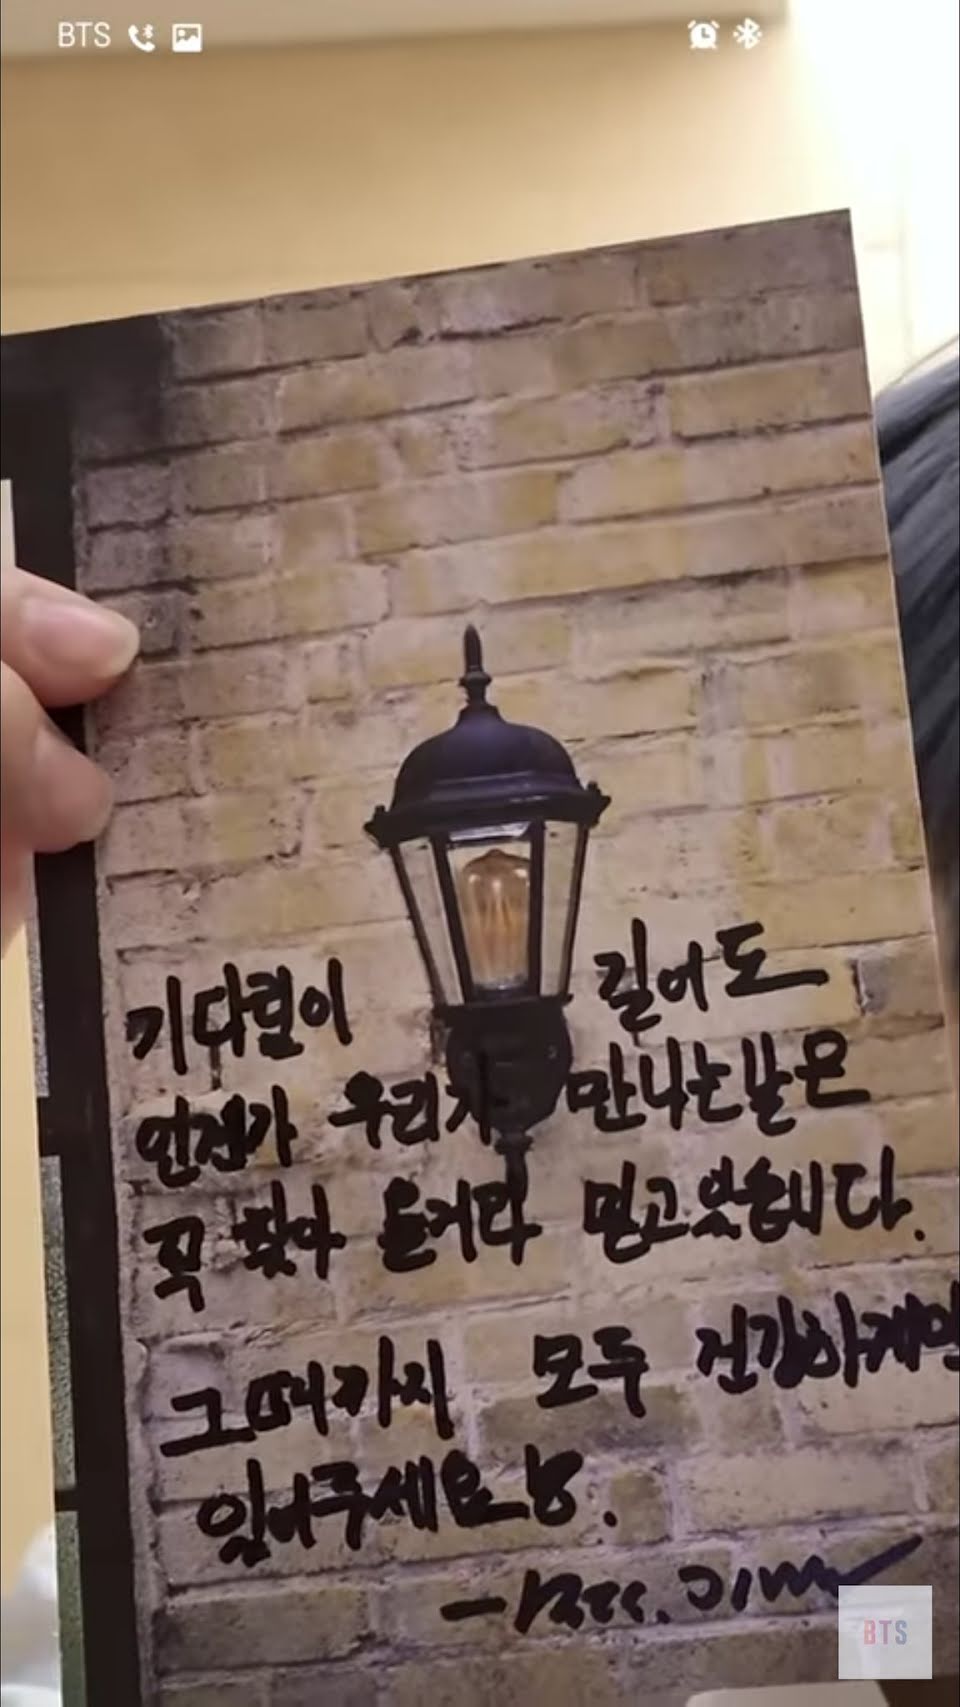 BTS
기다림이 길어도
언젠가 우리가 만나는 날은
꼭 찾아 올거라 믿고있습니다.
그때까지 모두 건강하게만
있어주세요
BTS